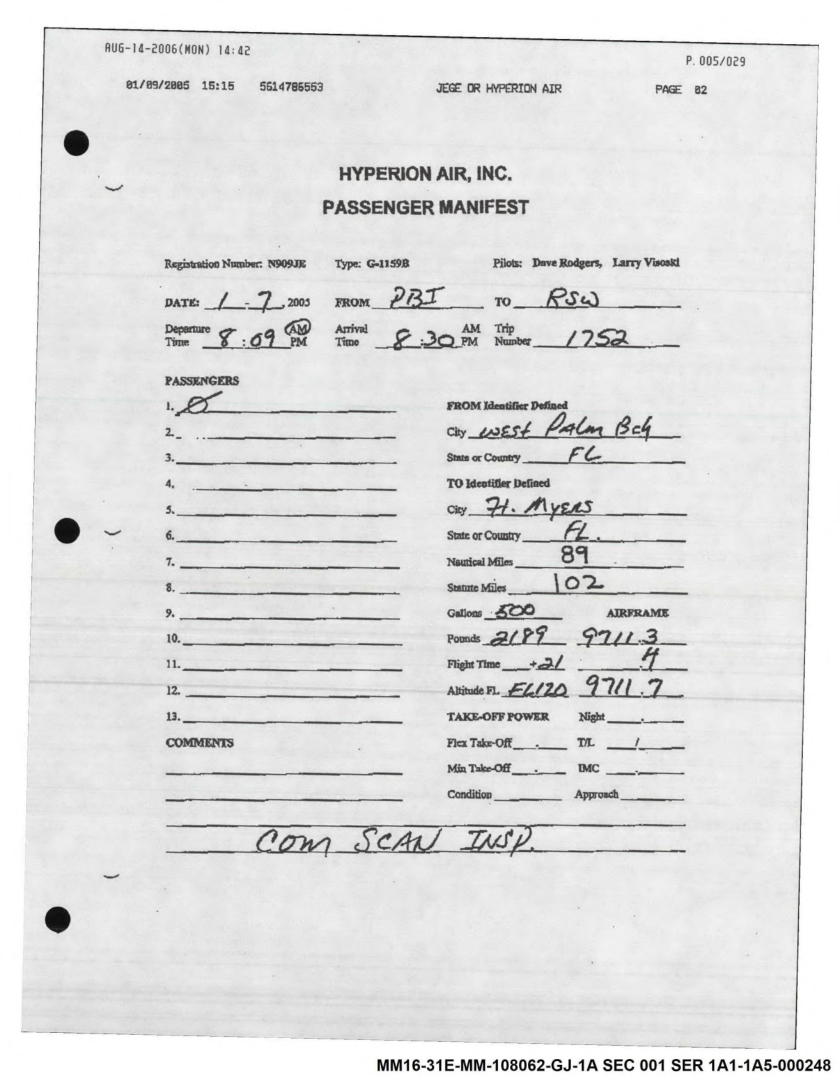 AUG-14-2006(MON) 14:42
P. 005/029
01/09/2005 15:15 5614786553 JEGE OR HYPERION AIR PAGE 02
HYPERION AIR, INC.
PASSENGER MANIFEST
Registration Number: N909JE Type: G-1159B Pilots: Dave Rodgers, Larry Visoski
DATE: 1 - 7, 2005 FROM PBI TO RSW
Departure Time 8:09 AM PM Arrival Time 8:30 AM PM Trip Number 1752
PASSENGERS
1. Ø
FROM Identifier Defined
2.
City WEST PALM Bch
3.
State or Country FL
4.
TO Identifier Defined
5.
City Ft. Myers
6.
State or Country FL.
7.
Nautical Miles 89
8.
Statute Miles 102
9.
Gallons 500 AIRFRAME
10.
Pounds 2189 9711.3
11.
Flight Time +21 .4
12.
Altitude FL FL120 9711.7
13.
TAKE-OFF POWER Night .
COMMENTS
Flex Take-Off . T/L /
Min Take-Off . IMC .
Condition Approach
COM SCAN INSP.
MM16-31E-MM-108062-GJ-1A SEC 001 SER 1A1-1A5-000248